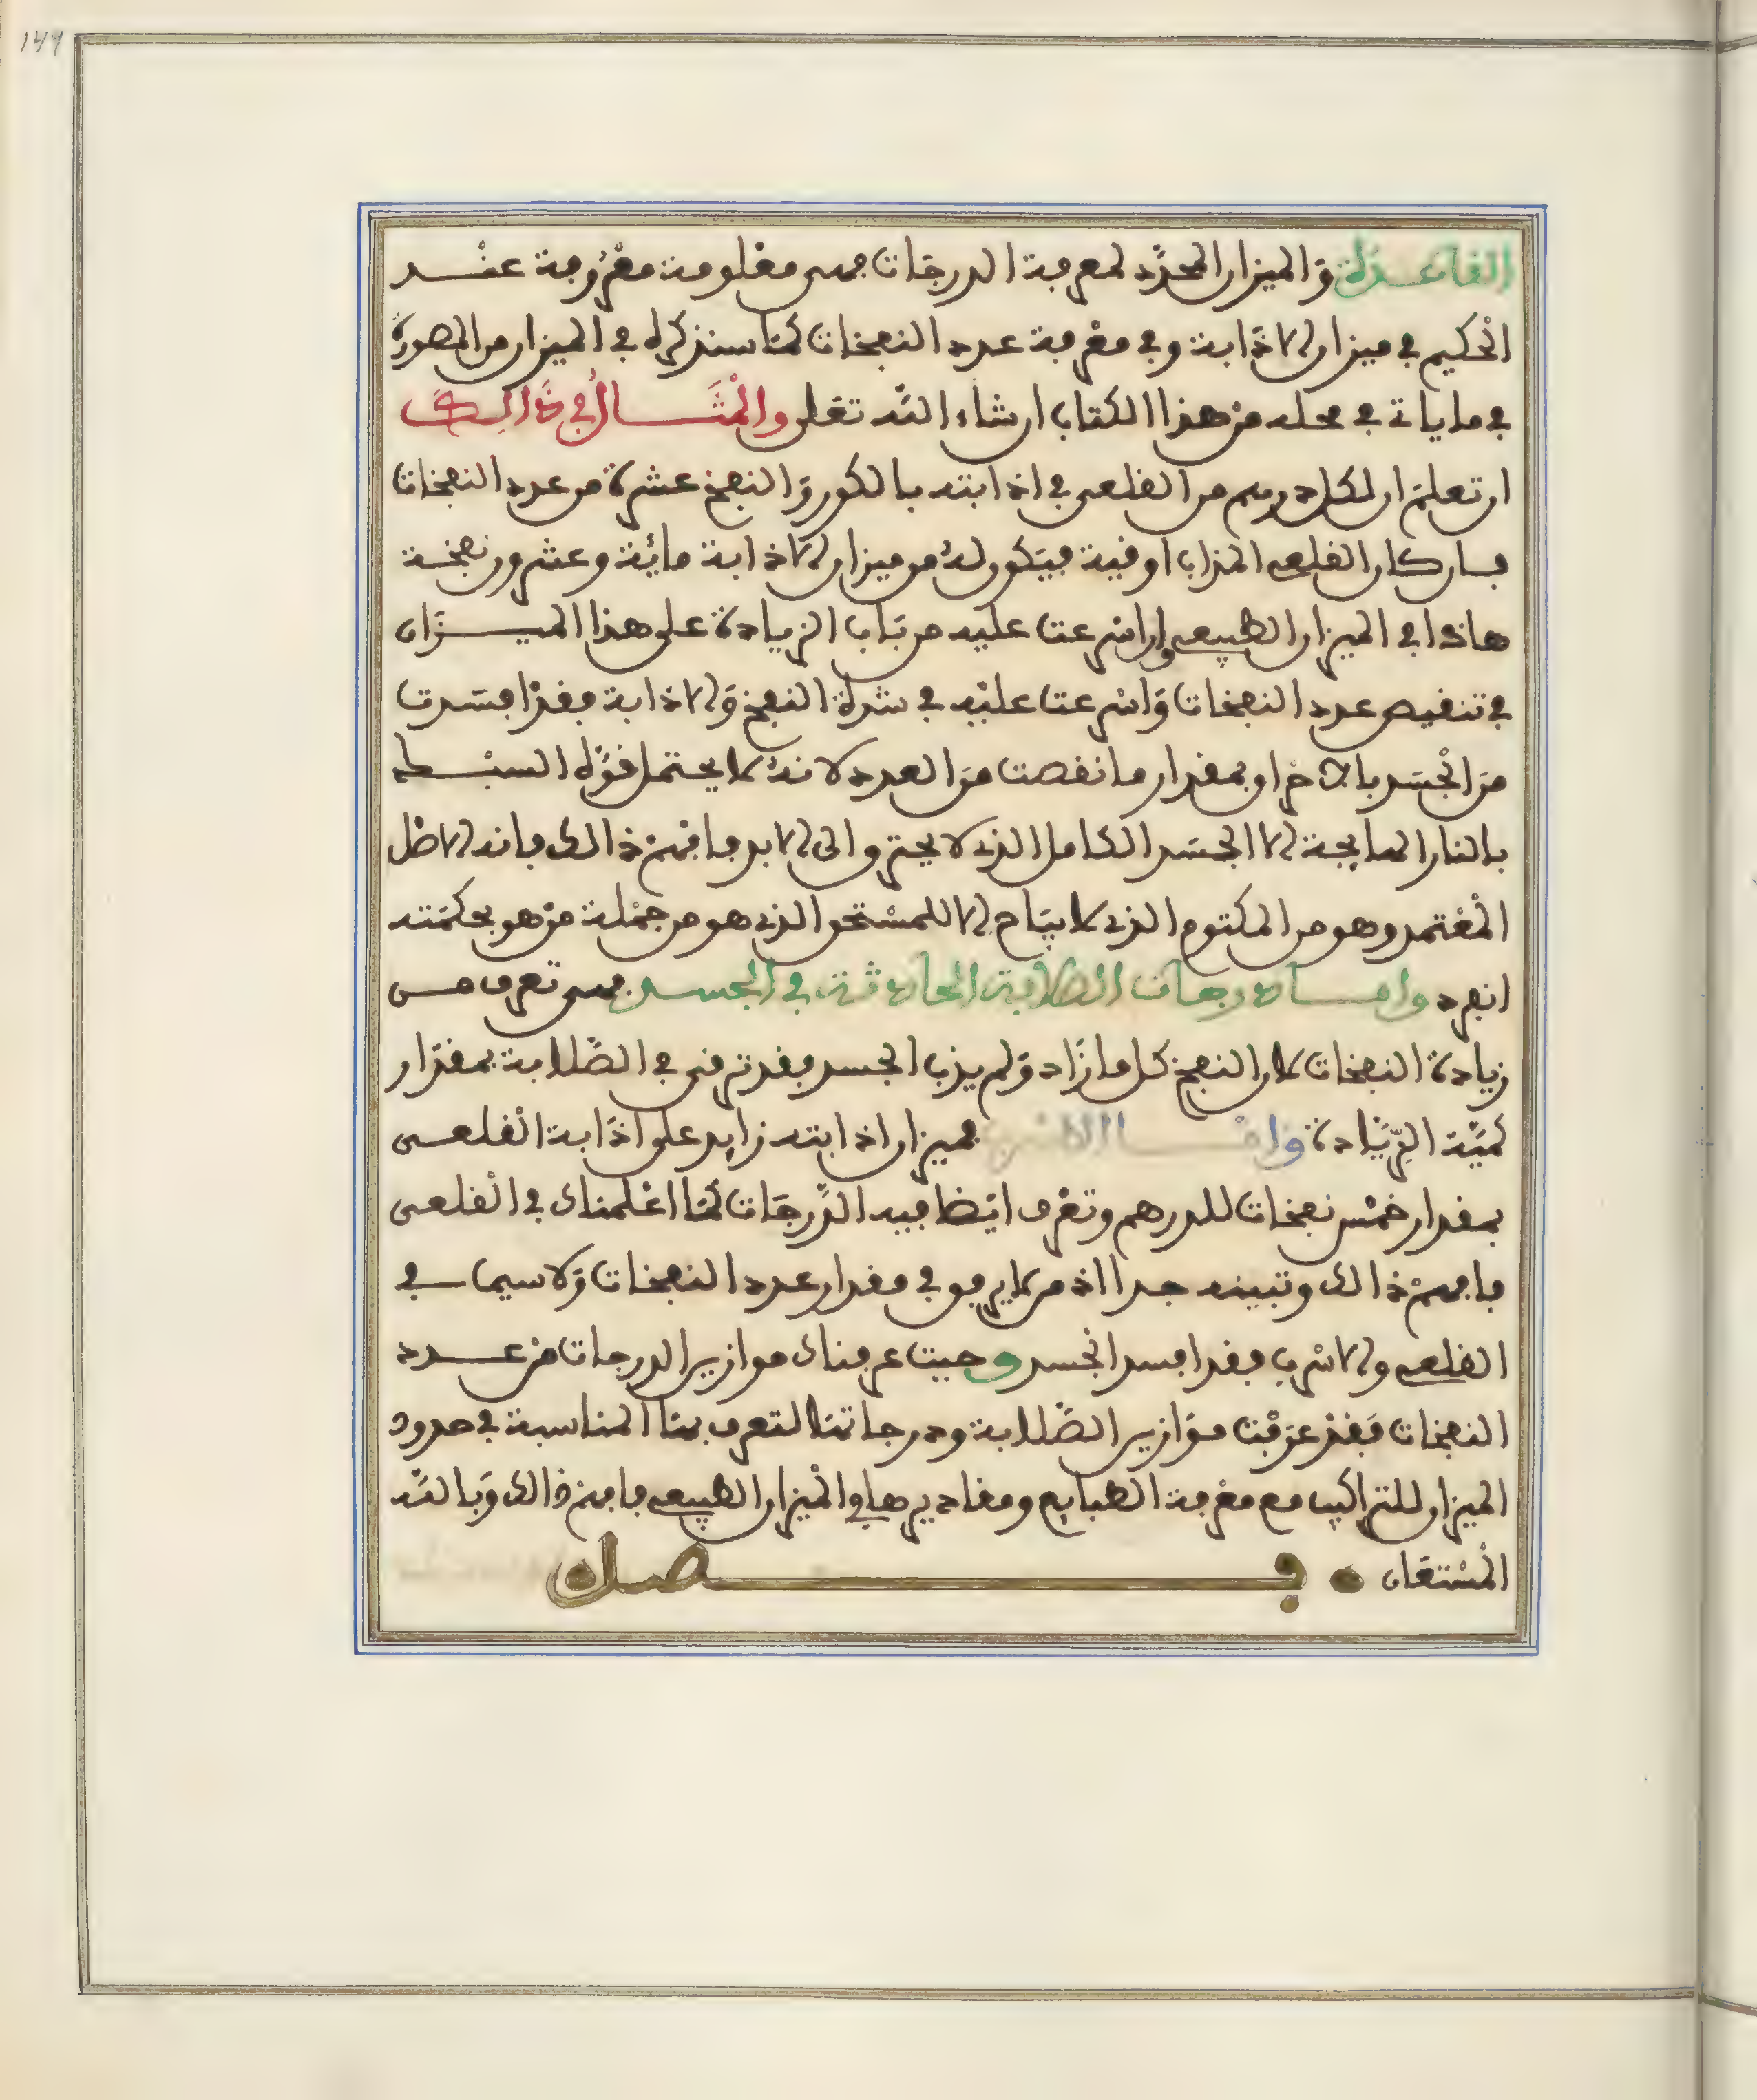 149
القاعدة والميزان المحدد لمعرفة الدرجات فهى معلومة معروفة عند
الحكيم في ميزان الاذابة وفي معرفة عدد النفخات كما سنذكره في الميزان من الصورة
في ما ياتي في محله من هذا الكتاب ان شاء الله تعلى والمثال في ذالك
ان تعلم ان لكل درهم من القلعى في اذابته بالكور والنفخ عشرة من عدد النفخات
فان كان القلعى المذاب اوقية فيكون له من ميزان الاذابة مائة وعشرون نفخة
هاذا في الميزان الطبيعى وان اسرعت عليه من باب الزيادة على هذا الميزان
في تنقيص عدد النفخات واسرعت عليه في شدة النفخ والاذابة فقد افسدت
من الجسد بالاخراق بمقدار ما نقصت من العدد لانه لا يحتمل قوة البسط
بالنار الهايجة الا الجسد الكامل الذى لا يحترق الى الابد فافهم ذالك فانه الاصل
المعتمد وهو من المكتوم الذى لا يباح الا للمستحق الذى هو من جملة من هو بحكمته
انفرد واما درجات الصلابة الحادثة في الجسد فهى تعرف من
زيادة النفخات لان النفخ كل ما زاد ولم يذب الجسد فقد ترقى في الصلابة بمقدار
كمية الزيادة واما الاسرب فميزان اذابته زايد على اذابة القلعى
بمقدار خمس نفخات للدرهم وتعرف ايضا فيه الدرجات كما اعلمناك في القلعى
فافهم ذالك وتبينه جدا اذ من لا يرفق في مقدار عدد النفخات ولا سيما في
القلعى والاسرب فقد افسد الجسد وحيت عرفناك موازين الدرجات من عدد
النفخات فقد عرفت موازين الصلابة ودرجاتها لتعرف بها المناسبة في حدود
الميزان للتراكيب مع معرفة الطبايع ومقاديرها في الميزان الطبيعى فافهم ذالك وبالله
المستعان فصل